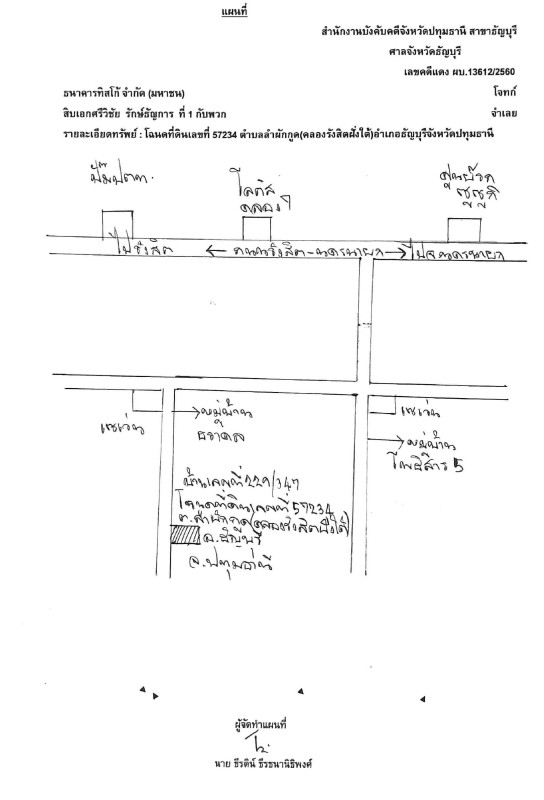 แผนที่
สำนักงานบังคับคดีจังหวัดปทุมธานี สาขาธัญบุรี
ศาลจังหวัดธัญบุรี
เลขคดีแดง ผบ.13612/2560
ธนาคารทิสโก้ จำกัด (มหาชน) โจทก์
สิบเอกศรีวิชัย รักษ์ธัญการ ที่ 1 กับพวก จำเลย
รายละเอียดทรัพย์ : โฉนดที่ดินเลขที่ 57234 ตำบลลำผักกูด(คลองรังสิตฝั่งใต้)อำเภอธัญบุรีจังหวัดปทุมธานี
ปั๊มปตท.
โลตัส
คลอง7
ซูซูกิ
ไปรังสิต
ถนนรังสิต-นครนายก
ไปจ.นครนายก
เซเว่น
หมู่บ้าน
ธราดล
เซเว่น
หมู่บ้าน
โพธิ์สาร 5
บ้านเลขที่ 229/347
โฉนดที่ดินเลขที่ 57234
ต.ลำผักกูด(คลองรังสิตฝั่งใต้)
อ.ธัญบุรี
จ.ปทุมธานี
ผู้จัดทำแผนที่
นาย ธีรดิน์ ธีรธนานิธิพงศ์